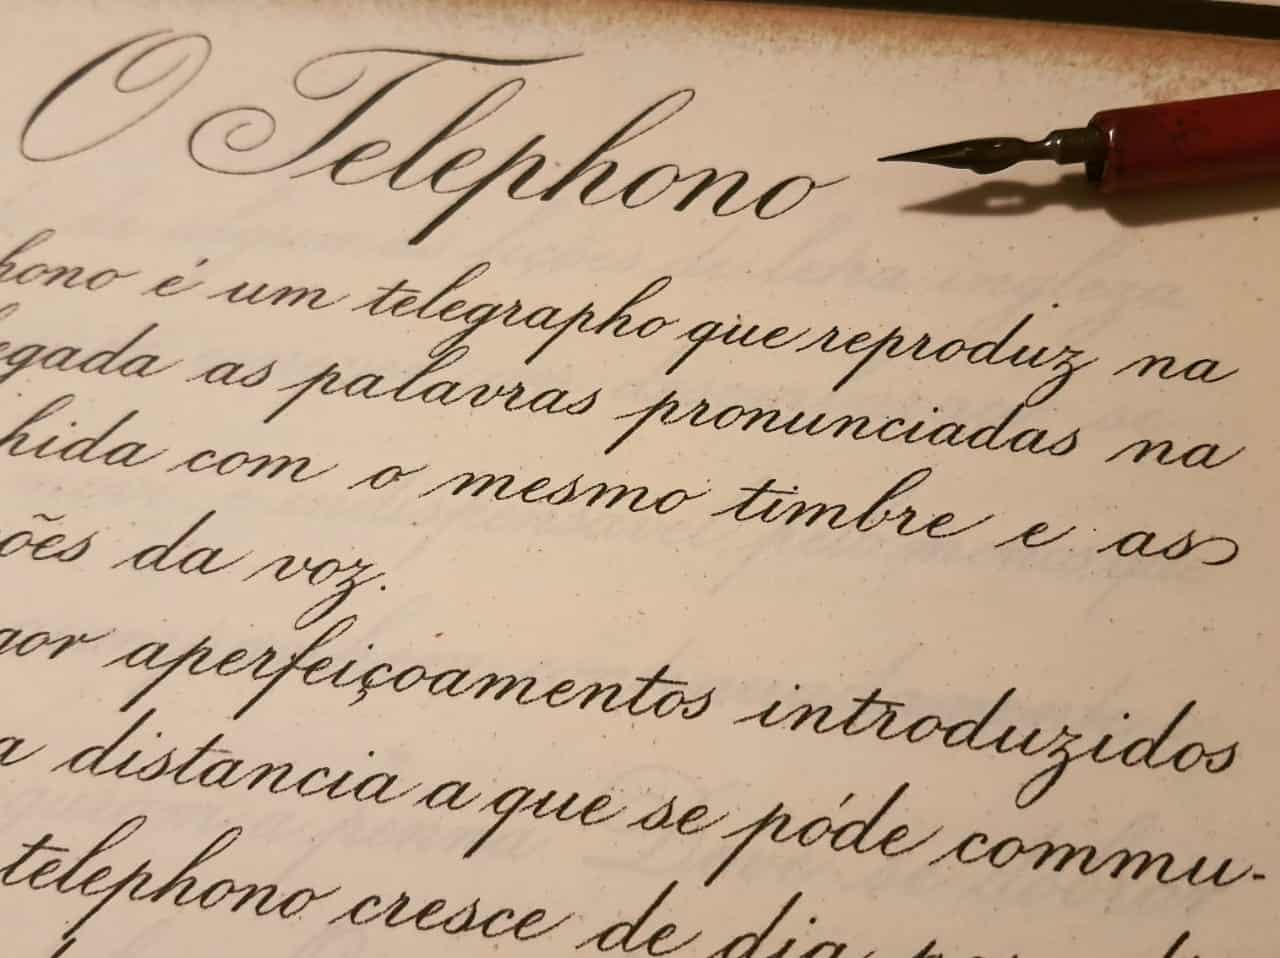 O Telephono
hono é um telegrapho que reproduz na
egada as palavras pronunciadas na
hida com o mesmo timbre e as
ões da voz.
gor aperfeiçoamentos introduzidos
a distancia a que se póde commu-
telephono cresce de dia